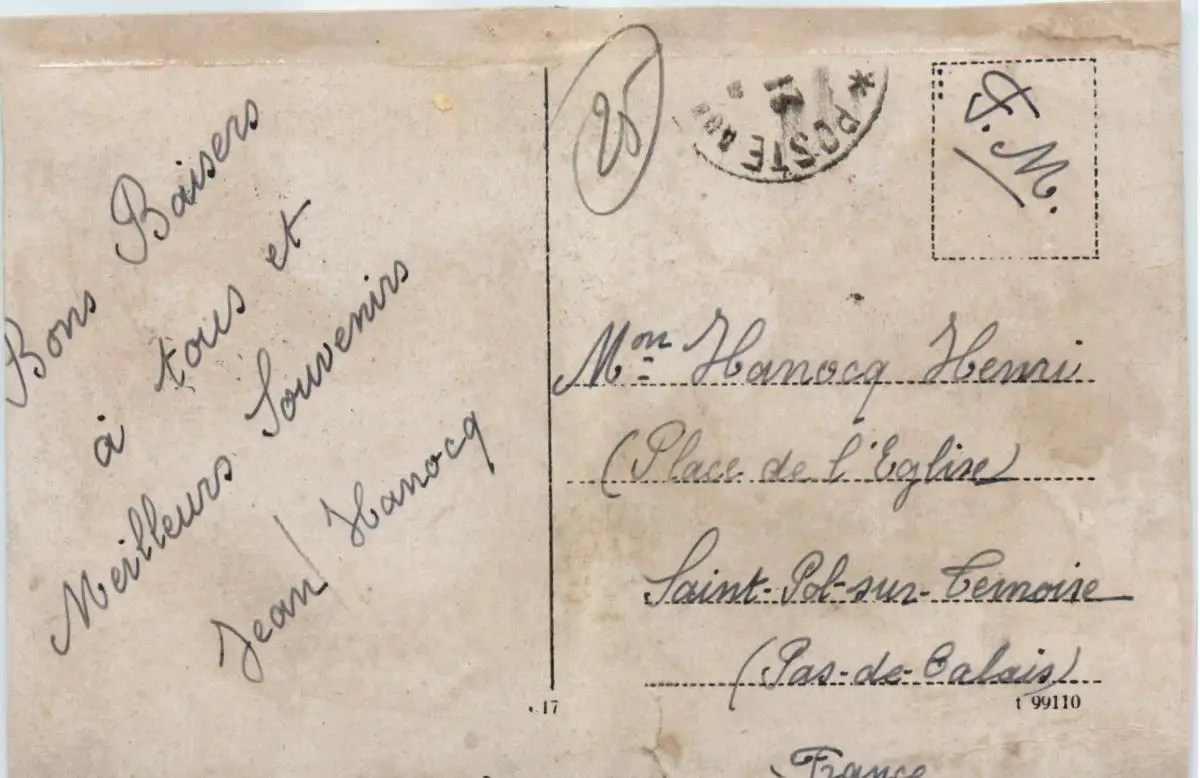 Bons Baisers
à tous et
Meilleurs Souvenirs
Jean Hanocq
25
* POSTE
13
F.M.
Mon Hanocq Henri
(Place de l'Eglise)
Saint-Pol-sur-Ternoise
(Pas-de-Calais)
17
t 99110
France